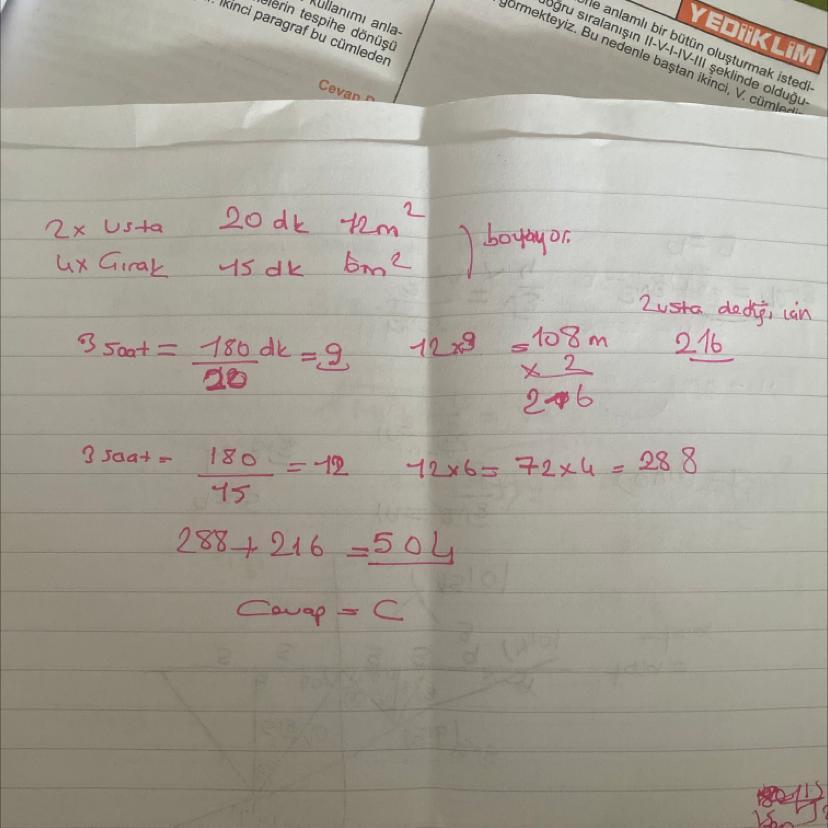 kullanımı anla-
elerin tespihe dönüşü
ikinci paragraf bu cümleden
Cevap D
YEDİİKLİM
anlamlı bir bütün oluşturmak istedi-
doğru sıralanışın II-V-I-IV-III şeklinde olduğu-
görmekteyiz. Bu nedenle baştan ikinci, V. cümledir
2x Usta 20 dk 12m²
4x Çırak 15 dk 6m²
) boyayor.
2 usta dediği için
3 saat = 180 dk / 20 = 9 12x9 = 108 m 216
x 2
216
3 saat = 180 / 15 = 12 12x6 = 72x4 = 288
288 + 216 = 504
Cevap = C